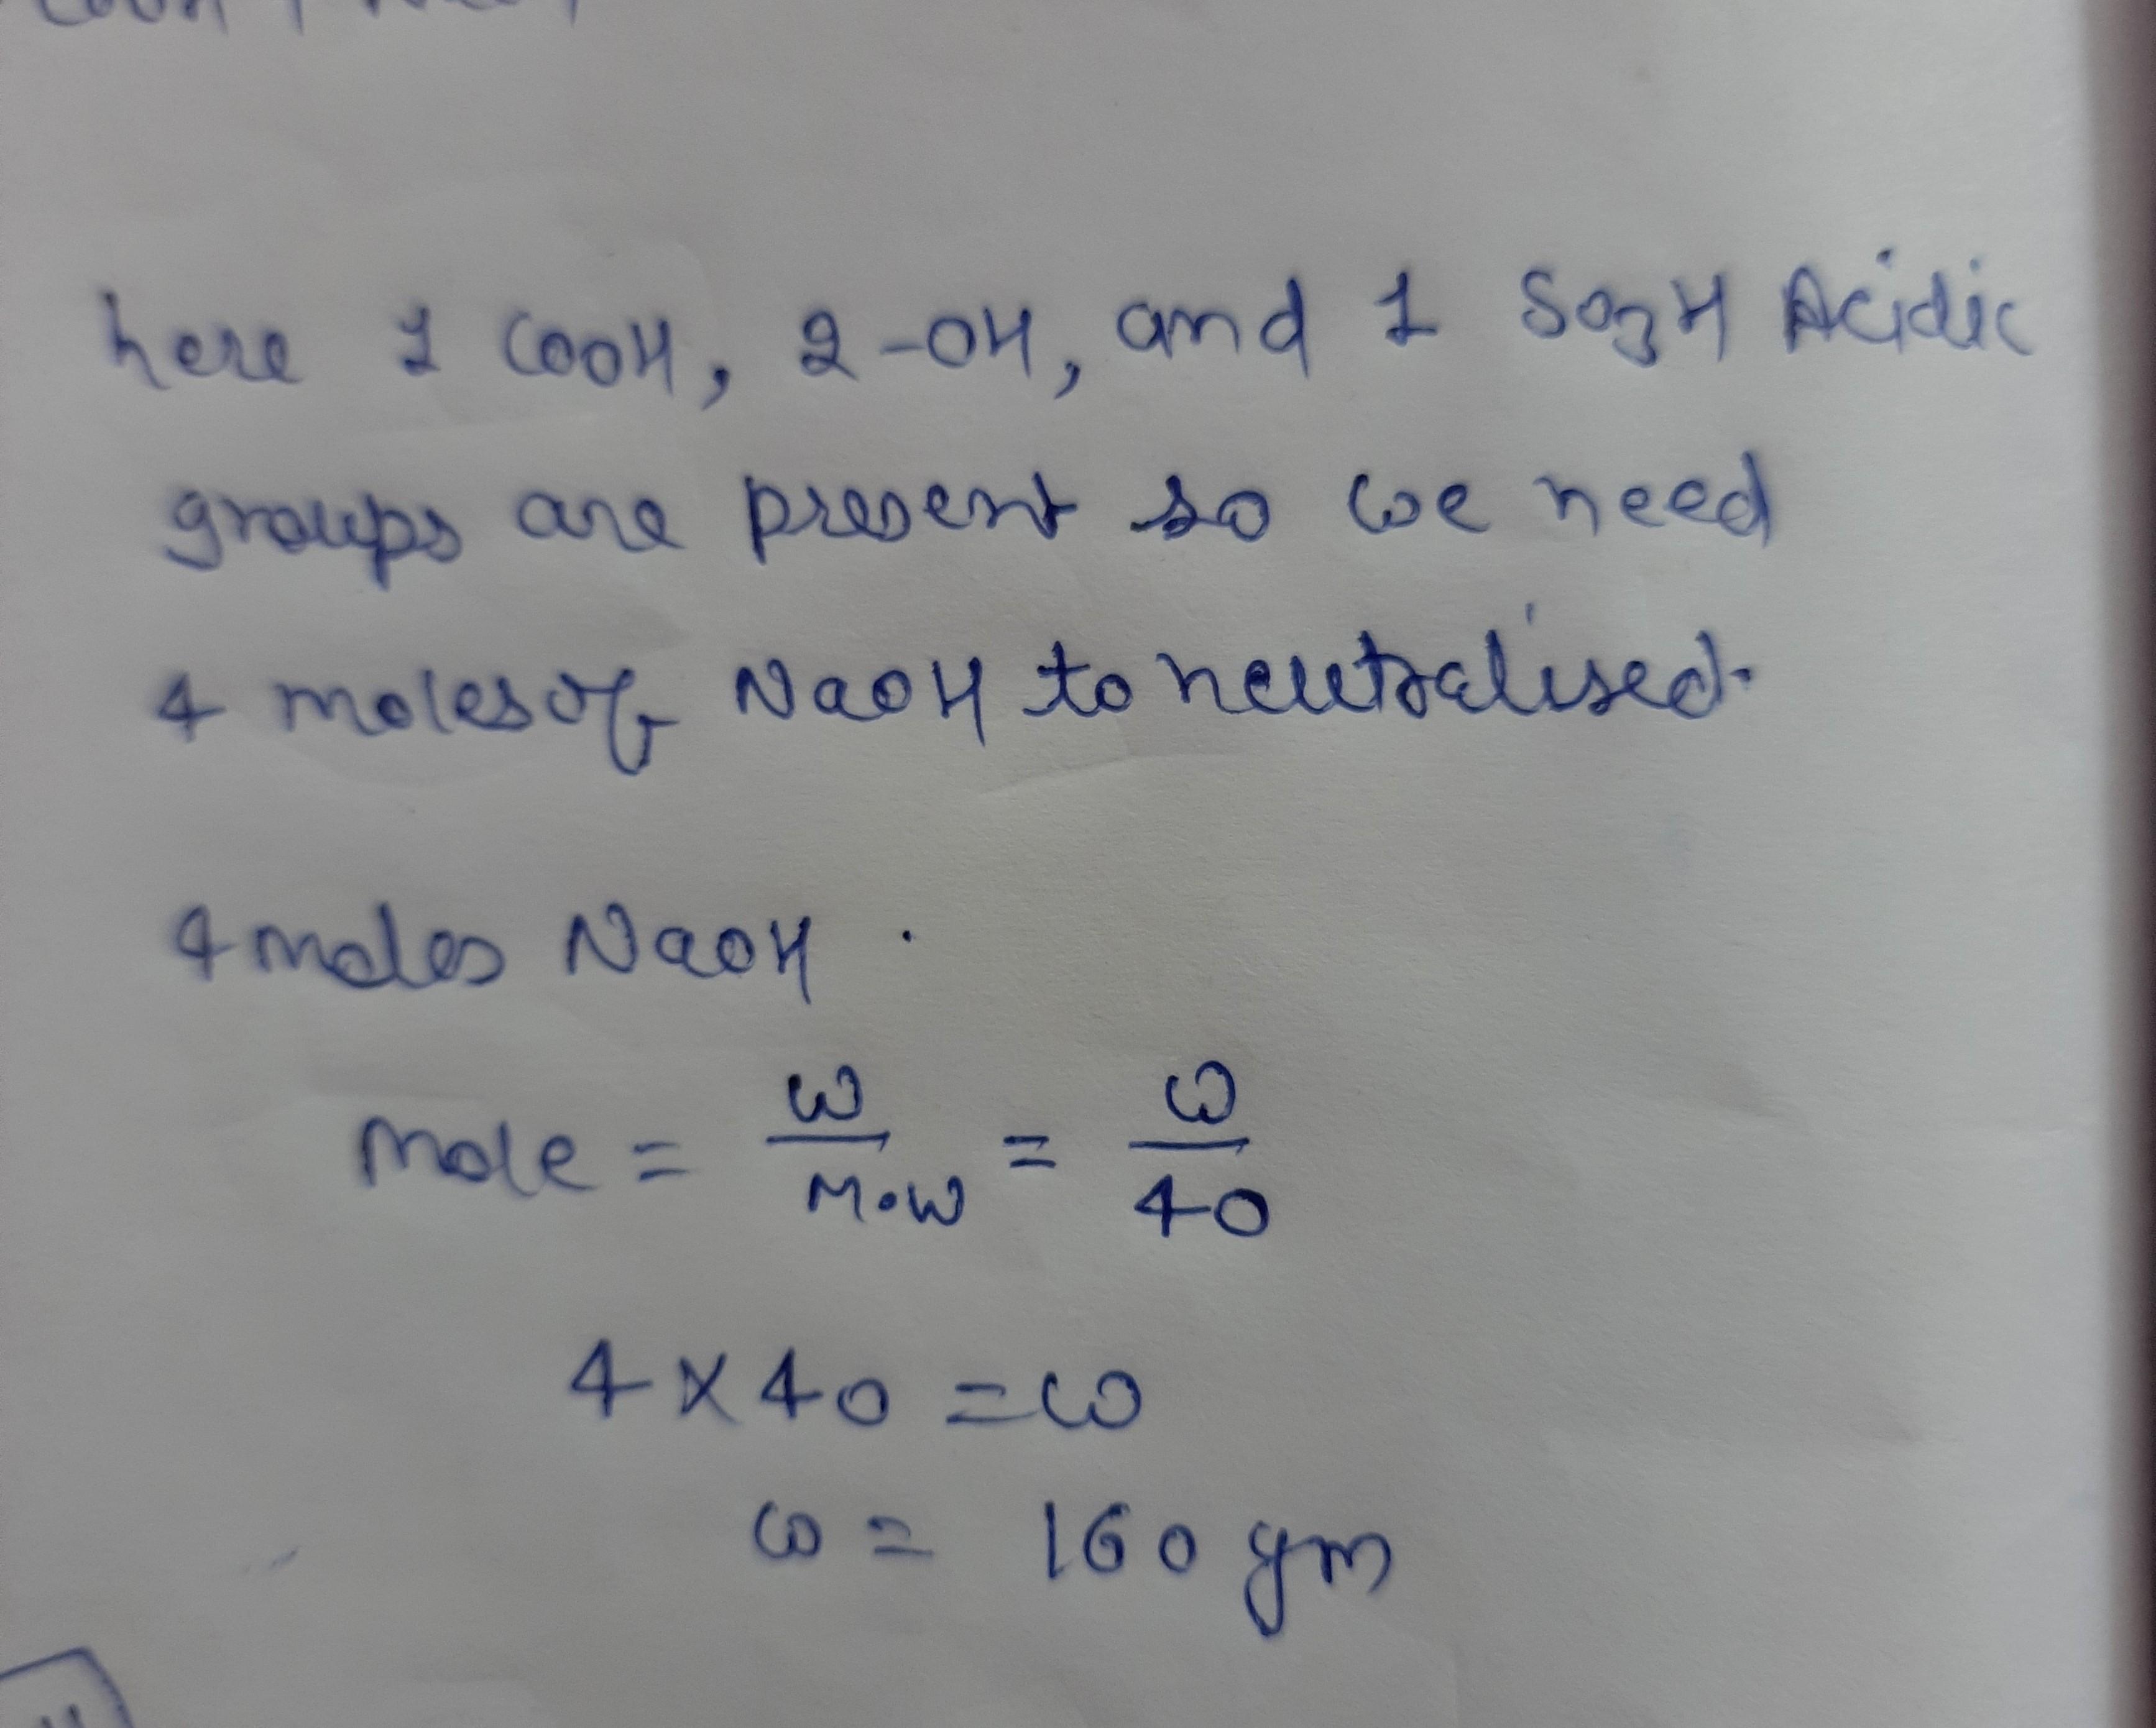 here 1 COOH, 2-OH, and 1 SO3H Acidic
groups are present so we need
4 moles of NaOH to neutralised.
4 moles NaOH.
mole = w/M.W = w/40
4 x 40 = w
w = 160 gm